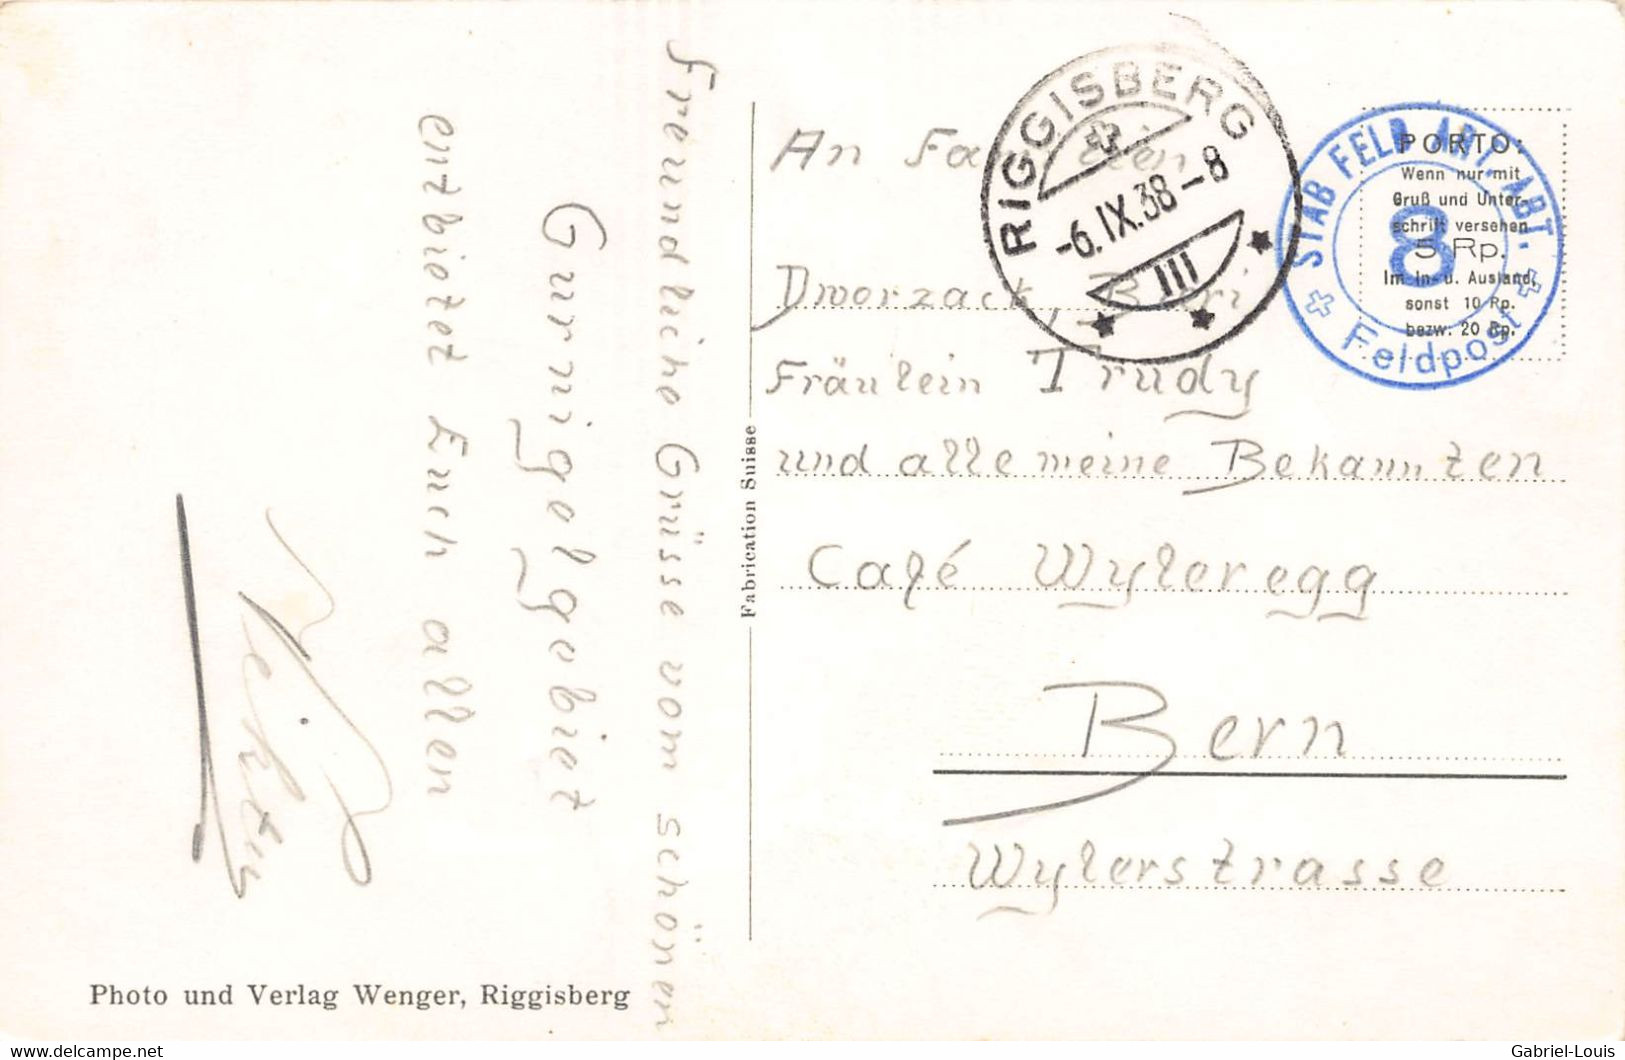 Freundliche Grüsse vom schönen
Gurnigelgebiet
entbietet Euch allen
Photo und Verlag Wenger, Riggisberg
Fabrication Suisse
RIGGISBERG
-6.IX.38-8
III
STAB FELD ART. ABT.
8
Feldpost
PORTO:
Wenn nur mit
Gruß und Unter-
schrift versehen
5 Rp.
Im In- u. Ausland,
sonst 10 Rp.
bezw. 20 Rp.
An
Dworzack
Fräulein Trudy
und alle meine Bekannten
Café Wyleregg
Bern
Wylerstrasse
www.delcampe.net
Gabriel-Louis